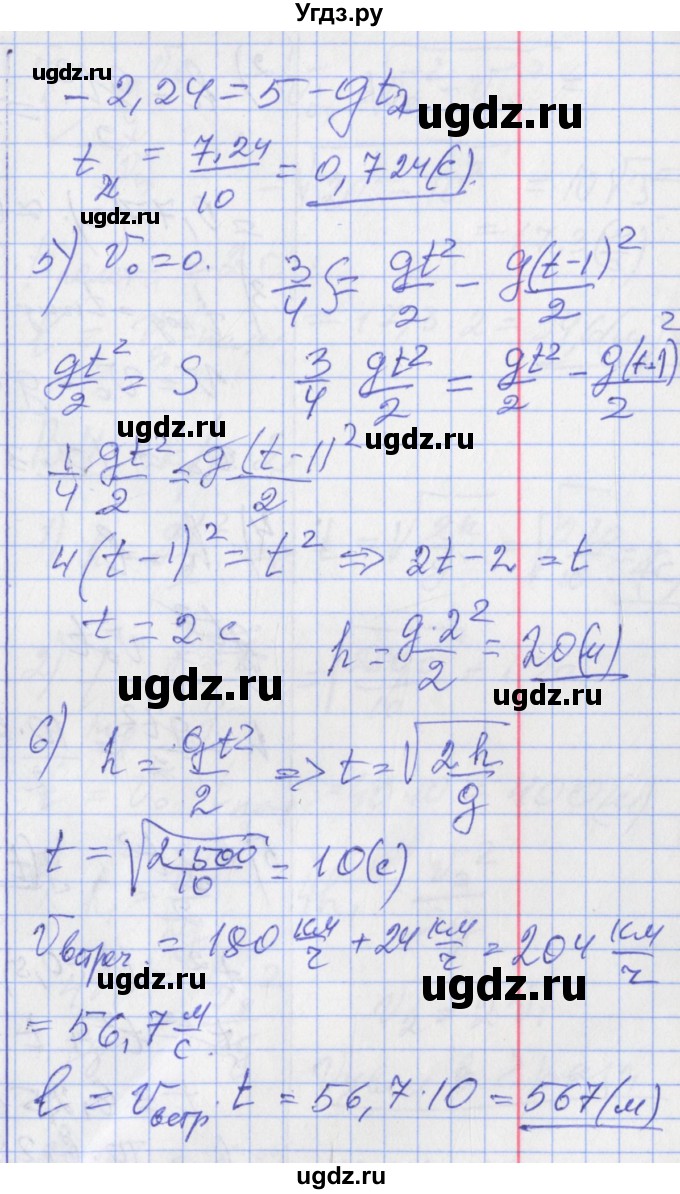 Угдз.ру
ugdz.ru
- 2,24 = 5 - gt₂
ugdz.ru
t₂ = 7,24/10 = 0,724(с).
ugdz.ru
5) V₀ = 0. 3/4 S = gt²/2 - g(t-1)²/2
gt²/2 = S 3/4 gt²/2 = gt²/2 - g(t-1)²/2
ugdz.ru
ugdz.ru
1/4 gt²/2 = g(t-1)²/2
4(t-1)² = t² => 2t-2 = t
t = 2 с h = g·2²/2 = 20(м)
ugdz.ru
ugdz.ru
6) h = gt²/2 => t = √(2h/g)
t = √(2·500/10) = 10(с)
Vвстреч. = 180 км/ч + 24 км/ч = 204 км/ч
ugdz.ru
ugdz.ru
= 56,7 м/с.
ℓ = Vвстр. · t = 56,7·10 = 567(м)
ugdz.ru